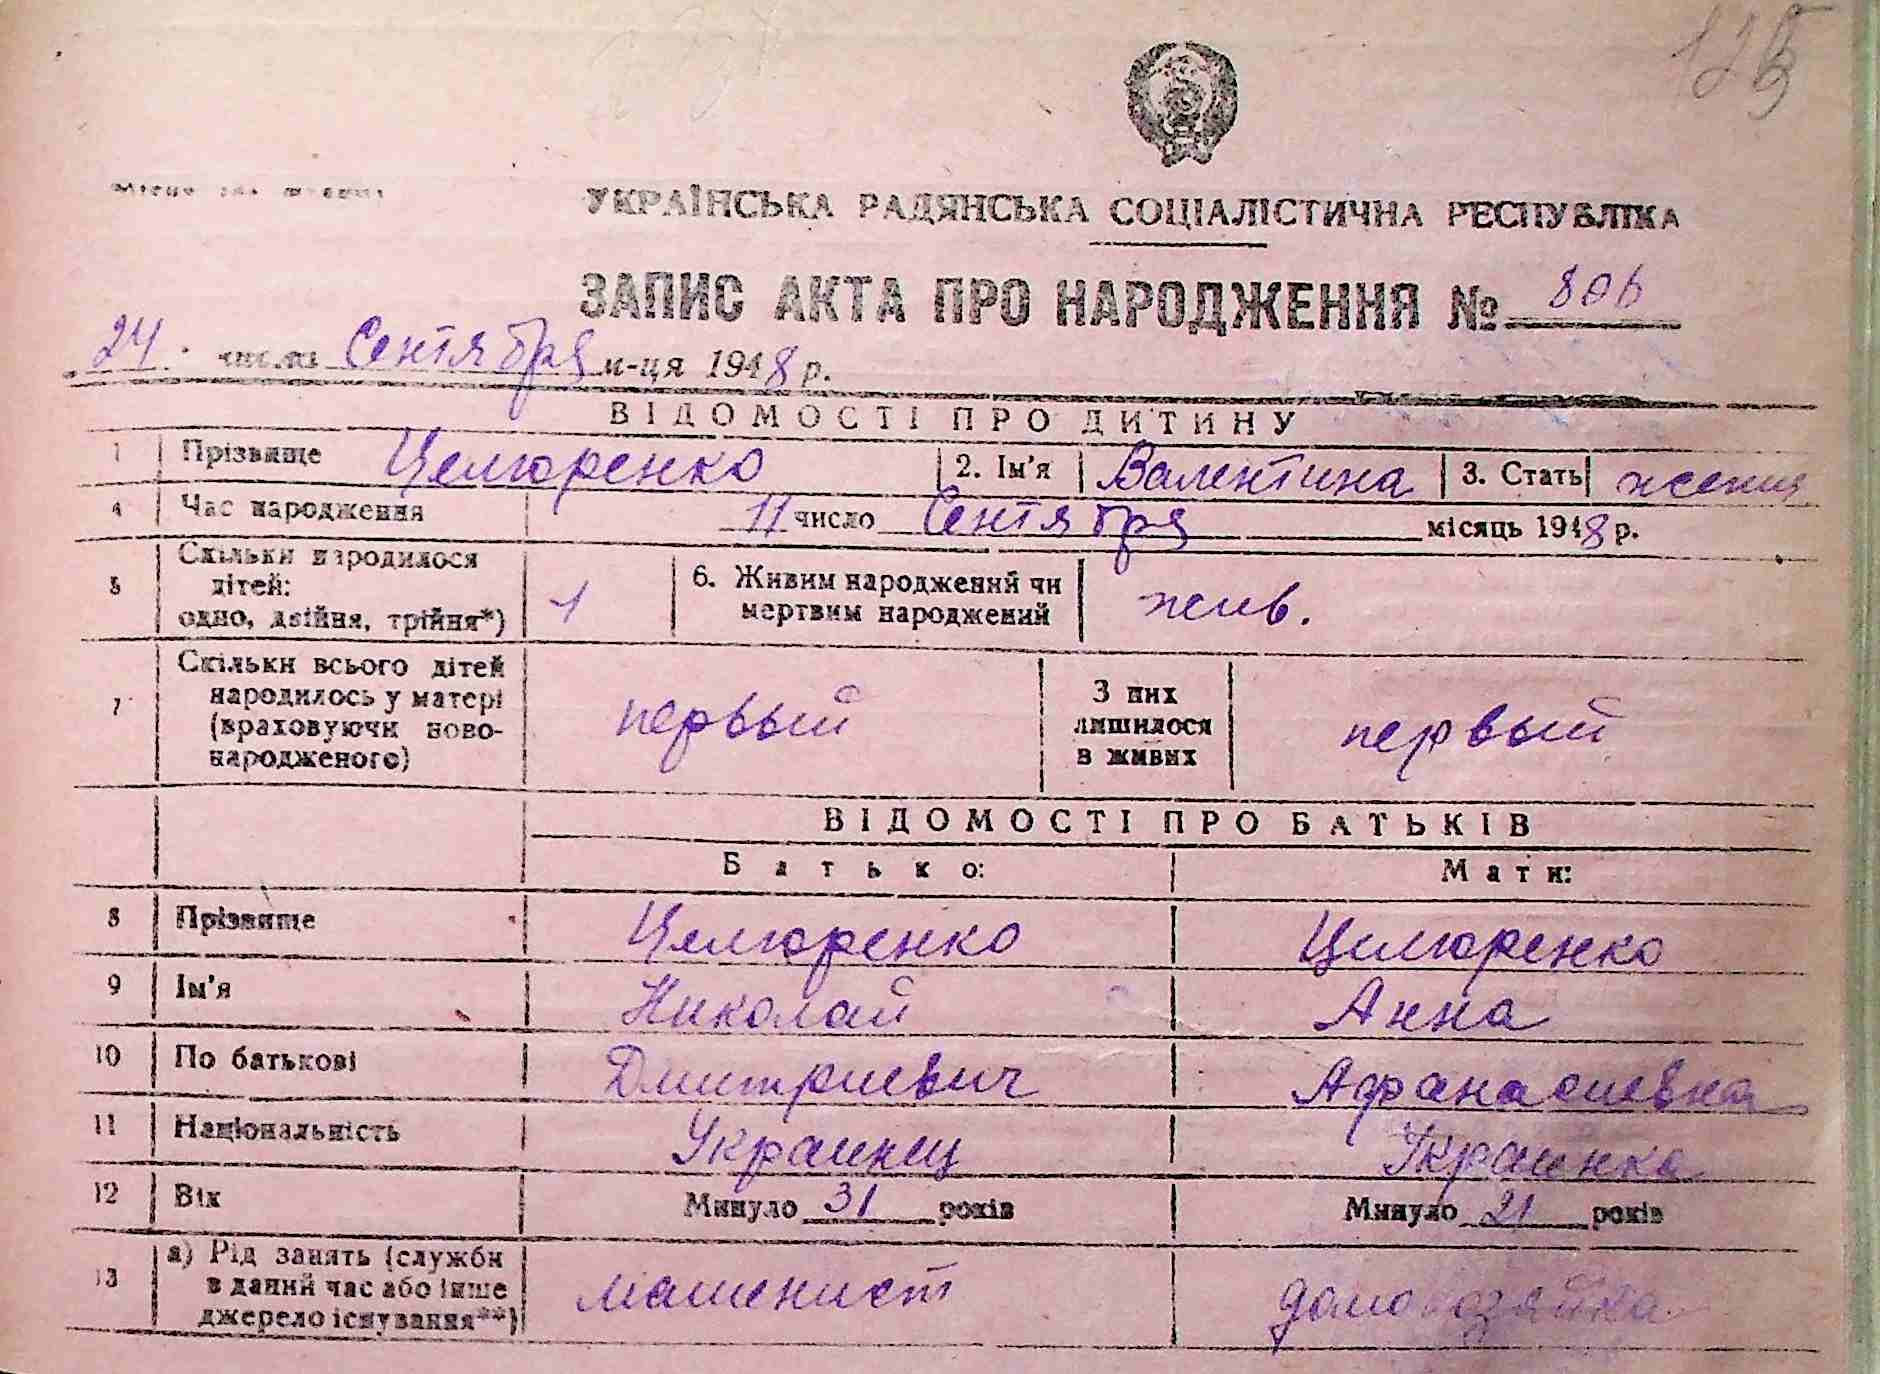 125
УКРАЇНСЬКА РАДЯНСЬКА СОЦІАЛІСТИЧНА РЕСПУБЛІКА
ЗАПИС АКТА ПРО НАРОДЖЕННЯ № 806
24 числа Сентября м-ця 1948 р.
ВІДОМОСТІ ПРО ДИТИНУ
1 Прізвище Целюренко 2. Ім'я Валентина 3. Стать женщ
4 Час народження 11 число Сентября місяць 1948 р.
5 Скільки народилося
дітей:
одно, двійня, трійня*) 1 6. Живим народжений чи
мертвим народжений жив.
7 Скільки всього дітей
народилось у матері
(враховуючи ново-
народженого) первый З них
лишилося
в живих первый
ВІДОМОСТІ ПРО БАТЬКІВ
Батько: Мати:
8 Прізвище Целюренко Целюренко
9 Ім'я Николай Анна
10 По батькові Дмитриевич Афанасиевна
11 Національність Украинец Украинка
12 Вік Минуло 31 років Минуло 21 років
13 а) Рід занять (служби
в даний час або інше
джерело існування**) машенист домохозяйка